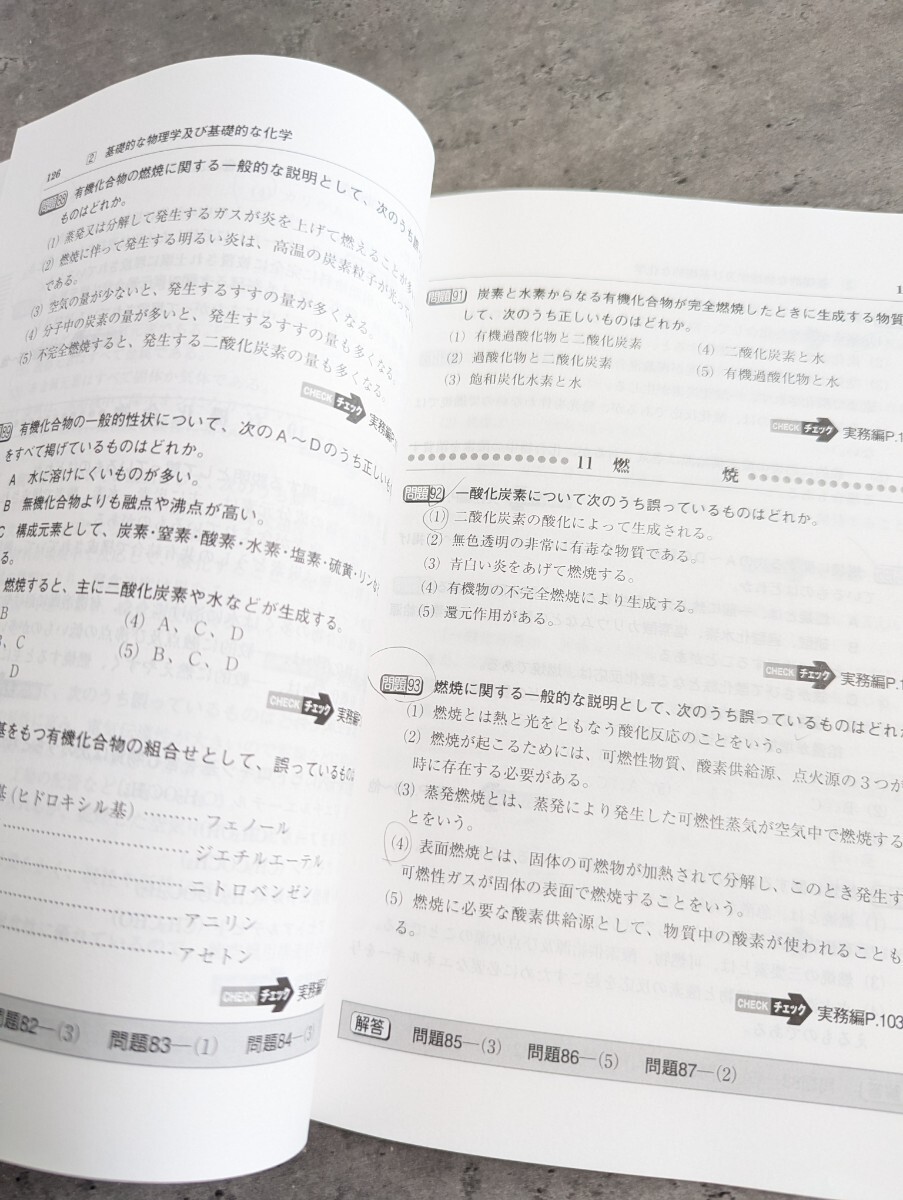 126　② 基礎的な物理学及び基礎的な化学
問題88 有機化合物の燃焼に関する一般的な説明として、次のうち誤
ものはどれか。
(1) 蒸発又は分解して発生するガスが炎を上げて燃えることが多
(2) 燃焼に伴って発生する明るい炎は、高温の炭素粒子が光っ
である。
(3) 空気の量が少ないと、発生するすすの量が多くなる。
(4) 分子中の炭素の量が多いと、発生するすすの量も多くなる。
(5) 不完全燃焼すると、発生する二酸化炭素の量も多くなる。
CHECK チェック 実務編P.
89 有機化合物の一般的性状について、次のA～Dのうち正しいも
をすべて掲げているものはどれか。
A 水に溶けにくいものが多い。
B 無機化合物よりも融点や沸点が高い。
C 構成元素として、炭素・窒素・酸素・水素・塩素・硫黄・リンな
る。
燃焼すると、主に二酸化炭素や水などが生成する。
B (4) A、C、D
、C (5) B、C、D
D
CHECK チェック 実務
基をもつ有機化合物の組合せとして、誤っているもの
基（ヒドロキシル基）……… フェノール
……… ジエチルエーテル
……… ニトロベンゼン
……… アニリン
……… アセトン
CHECK チェック 実務編
問題82―(3) 問題83―(1) 問題84―(3)
1
問題91 炭素と水素からなる有機化合物が完全燃焼したときに生成する物質
して、次のうち正しいものはどれか。
(1) 有機過酸化物と二酸化炭素 (4) 二酸化炭素と水
(2) 過酸化物と二酸化炭素 (5) 有機過酸化物と水
(3) 飽和炭化水素と水
CHECK チェック 実務編P.1
11 燃 焼
問題92 一酸化炭素について次のうち誤っているものはどれか。
(1) 二酸化炭素の酸化によって生成される。
(2) 無色透明の非常に有毒な物質である。
(3) 青白い炎をあげて燃焼する。
(4) 有機物の不完全燃焼により生成する。
(5) 還元作用がある。
CHECK チェック 実務編P.1
問題93 燃焼に関する一般的な説明として、次のうち誤っているものはどれか
(1) 燃焼とは熱と光をともなう酸化反応のことをいう。
(2) 燃焼が起こるためには、可燃性物質、酸素供給源、点火源の3つが
時に存在する必要がある。
(3) 蒸発燃焼とは、蒸発により発生した可燃性蒸気が空気中で燃焼する
とをいう。
(4) 表面燃焼とは、固体の可燃物が加熱されて分解し、このとき発生す
可燃性ガスが固体の表面で燃焼することをいう。
(5) 燃焼に必要な酸素供給源として、物質中の酸素が使われることも
る。
CHECK チェック 実務編P.103
解答 問題85―(3) 問題86―(5) 問題87―(2)